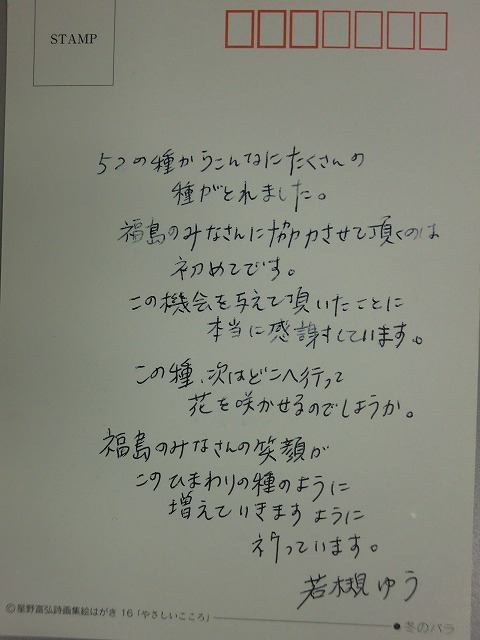 STAMP
5つの種からこんなにたくさんの
種がとれました。
福島のみなさんに協力させて頂くのは
初めてです。
この機会を与えて頂いたことに
本当に感謝しています。
この種、次はどこへ行って
花を咲かせるのでしょうか。
福島のみなさんの笑顔が
このひまわりの種のように
増えていきますように
祈っています。
若槻ゆう
©星野富弘詩画集絵はがき16「やさしいこころ」
●冬のバラ